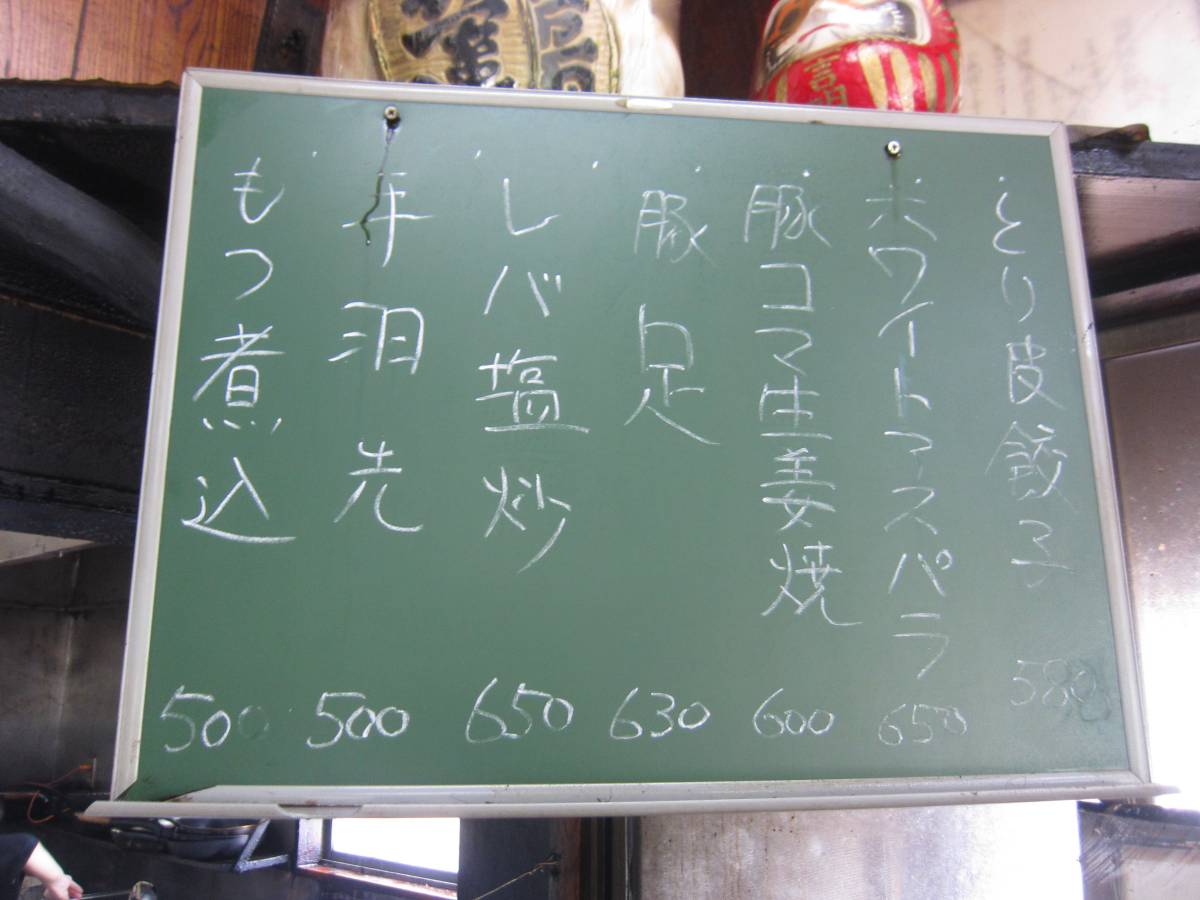 とり皮餃子 580
ホワイトアースパラ 650
豚コマ生姜焼 600
豚足 630
レバ塩炒 650
手羽先 500
もつ煮込 500